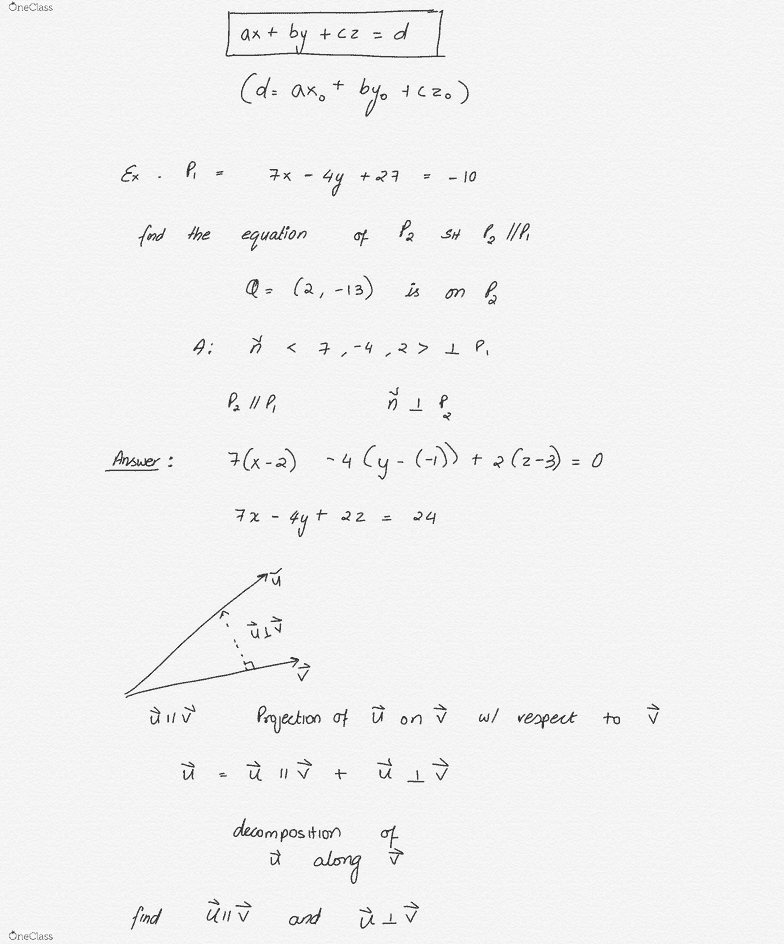 OneClass
ax + by + cz = d
(d = ax₀ + by₀ + cz₀)
Ex . P₁ = 7x - 4y + 27 = -10
find the equation of P₂ st P₂ // P₁
Q = (2, -13) is on P₂
A: n⃗ < 7, -4, 2 > ⊥ P₁
P₂ // P₁ n⃗ ⊥ P₂
Answer : 7(x-2) -4(y-(-1)) + 2(z-3) = 0
7x - 4y + 2z = 24
u⃗
u⃗ ⊥ v⃗
v⃗
u⃗ // v⃗ Projection of u⃗ on v⃗ w/ respect to v⃗
u⃗ = u⃗ // v⃗ + u⃗ ⊥ v⃗
decomposition of
u⃗ along v⃗
find u⃗ // v⃗ and u⃗ ⊥ v⃗
OneClass